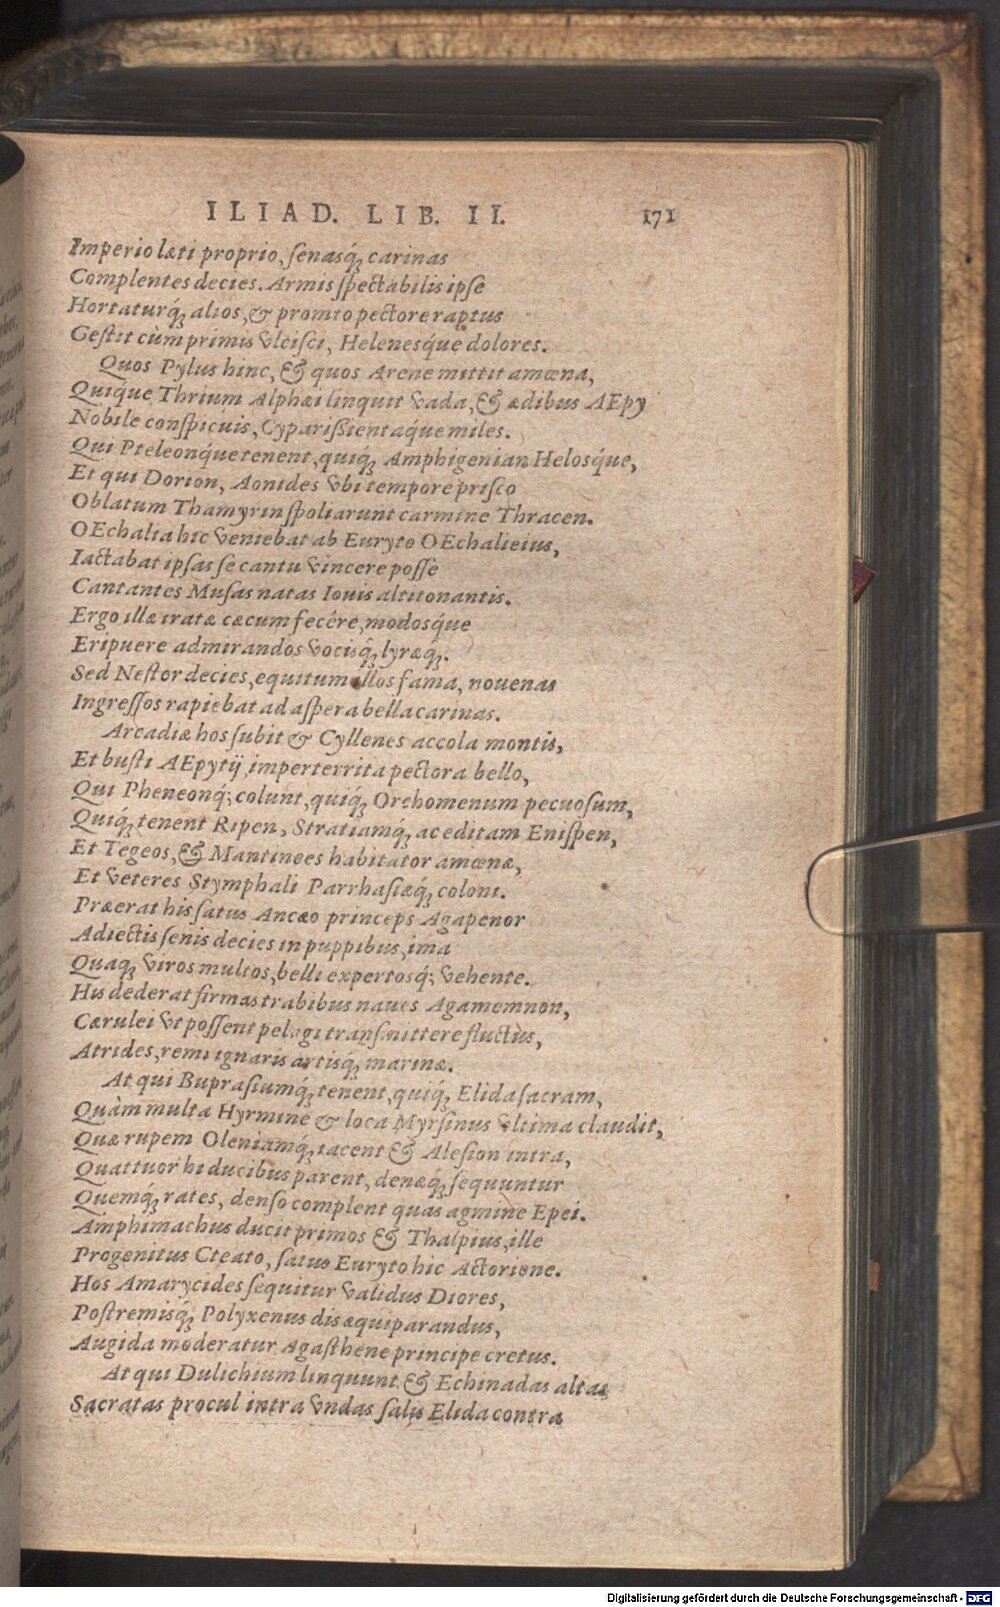 ILIAD. LIB. II. 171
Imperio læti proprio, senasq́; carinas
Complentes decies. Armis spectabilis ipse
Hortaturq́; alios, & promto pectore raptus
Gestit cùm primis vlcisci, Helenesq́ue dolores.
Quos Pylus hinc, & quos Arene mittit amœna,
Quiq́ue Thrium Alphæi linquit vada, & ædibus AEpy
Nobile conspicuis, Cyparißientaq́ue miles.
Qui Pteleonq́ue tenent, quiq́; Amphigenian Helosq́ue,
Et qui Dorion, Aonides vbi tempore prisco
Oblatum Thamyrin spoliarunt carmine Thracen.
OEchalia hic veniebat ab Euryto OEchalieius,
Iactabat ipsas se cantu vincere posse
Cantantes Musas natas Iouis altitonantis.
Ergo illæ iratæ cæcum fecêre, modosq́ue
Eripuere admirandos vocisq́; lyræq́;.
Sed Nestor decies, equitum illos fama, nouenas
Ingressos rapiebat ad aspera bella carinas.
Arcadiæ hos subit & Cyllenes accola montis,
Et busti AEpytij imperterrita pectora bello,
Qui Pheneonq́; colunt, quiq́; Orchomenum pecuosum,
Quiq́; tenent Ripen, Stratiamq́; ac editam Enispen,
Et Tegeos, & Mantinees habitator amœnæ,
Et veteres Stymphali Parrhasiæq́; coloni.
Præerat his satus Ancæo princeps Agapenor
Adiectis senis decies in puppibus, ima
Quaq; viros multos, belli expertosq́; vehente.
His dederat firmas trabibus naues Agamemnon,
Cærulei vt possent pelagi transmittere fluctus,
Atrides, remi ignaris artisq́; marinæ.
At qui Buprasiumq́; tenent, quiq́; Elida sacram,
Quàm multa Hyrmine & loca Myrsinus vltima claudit,
Quæ rupem Oleniamq́; iacent & Alesion intra,
Quattuor hi ducibus parent, denæq́; sequuntur
Quemq́; rates, denso complent quas agmine Epei.
Amphimachus ducit primos & Thalpius, ille
Progenitus Cteato, satus Euryto hic Actorione.
Hos Amarycides sequitur validus Diores,
Postremisq́; Polyxenus dis æquiparandus,
Augida moderatur Agasthene principe cretus.
At qui Dulichium linquunt & Echinadas altas
Sacratas procul intra vndas salis Elida contra
Digitalisierung gefördert durch die Deutsche Forschungsgemeinschaft - DFG